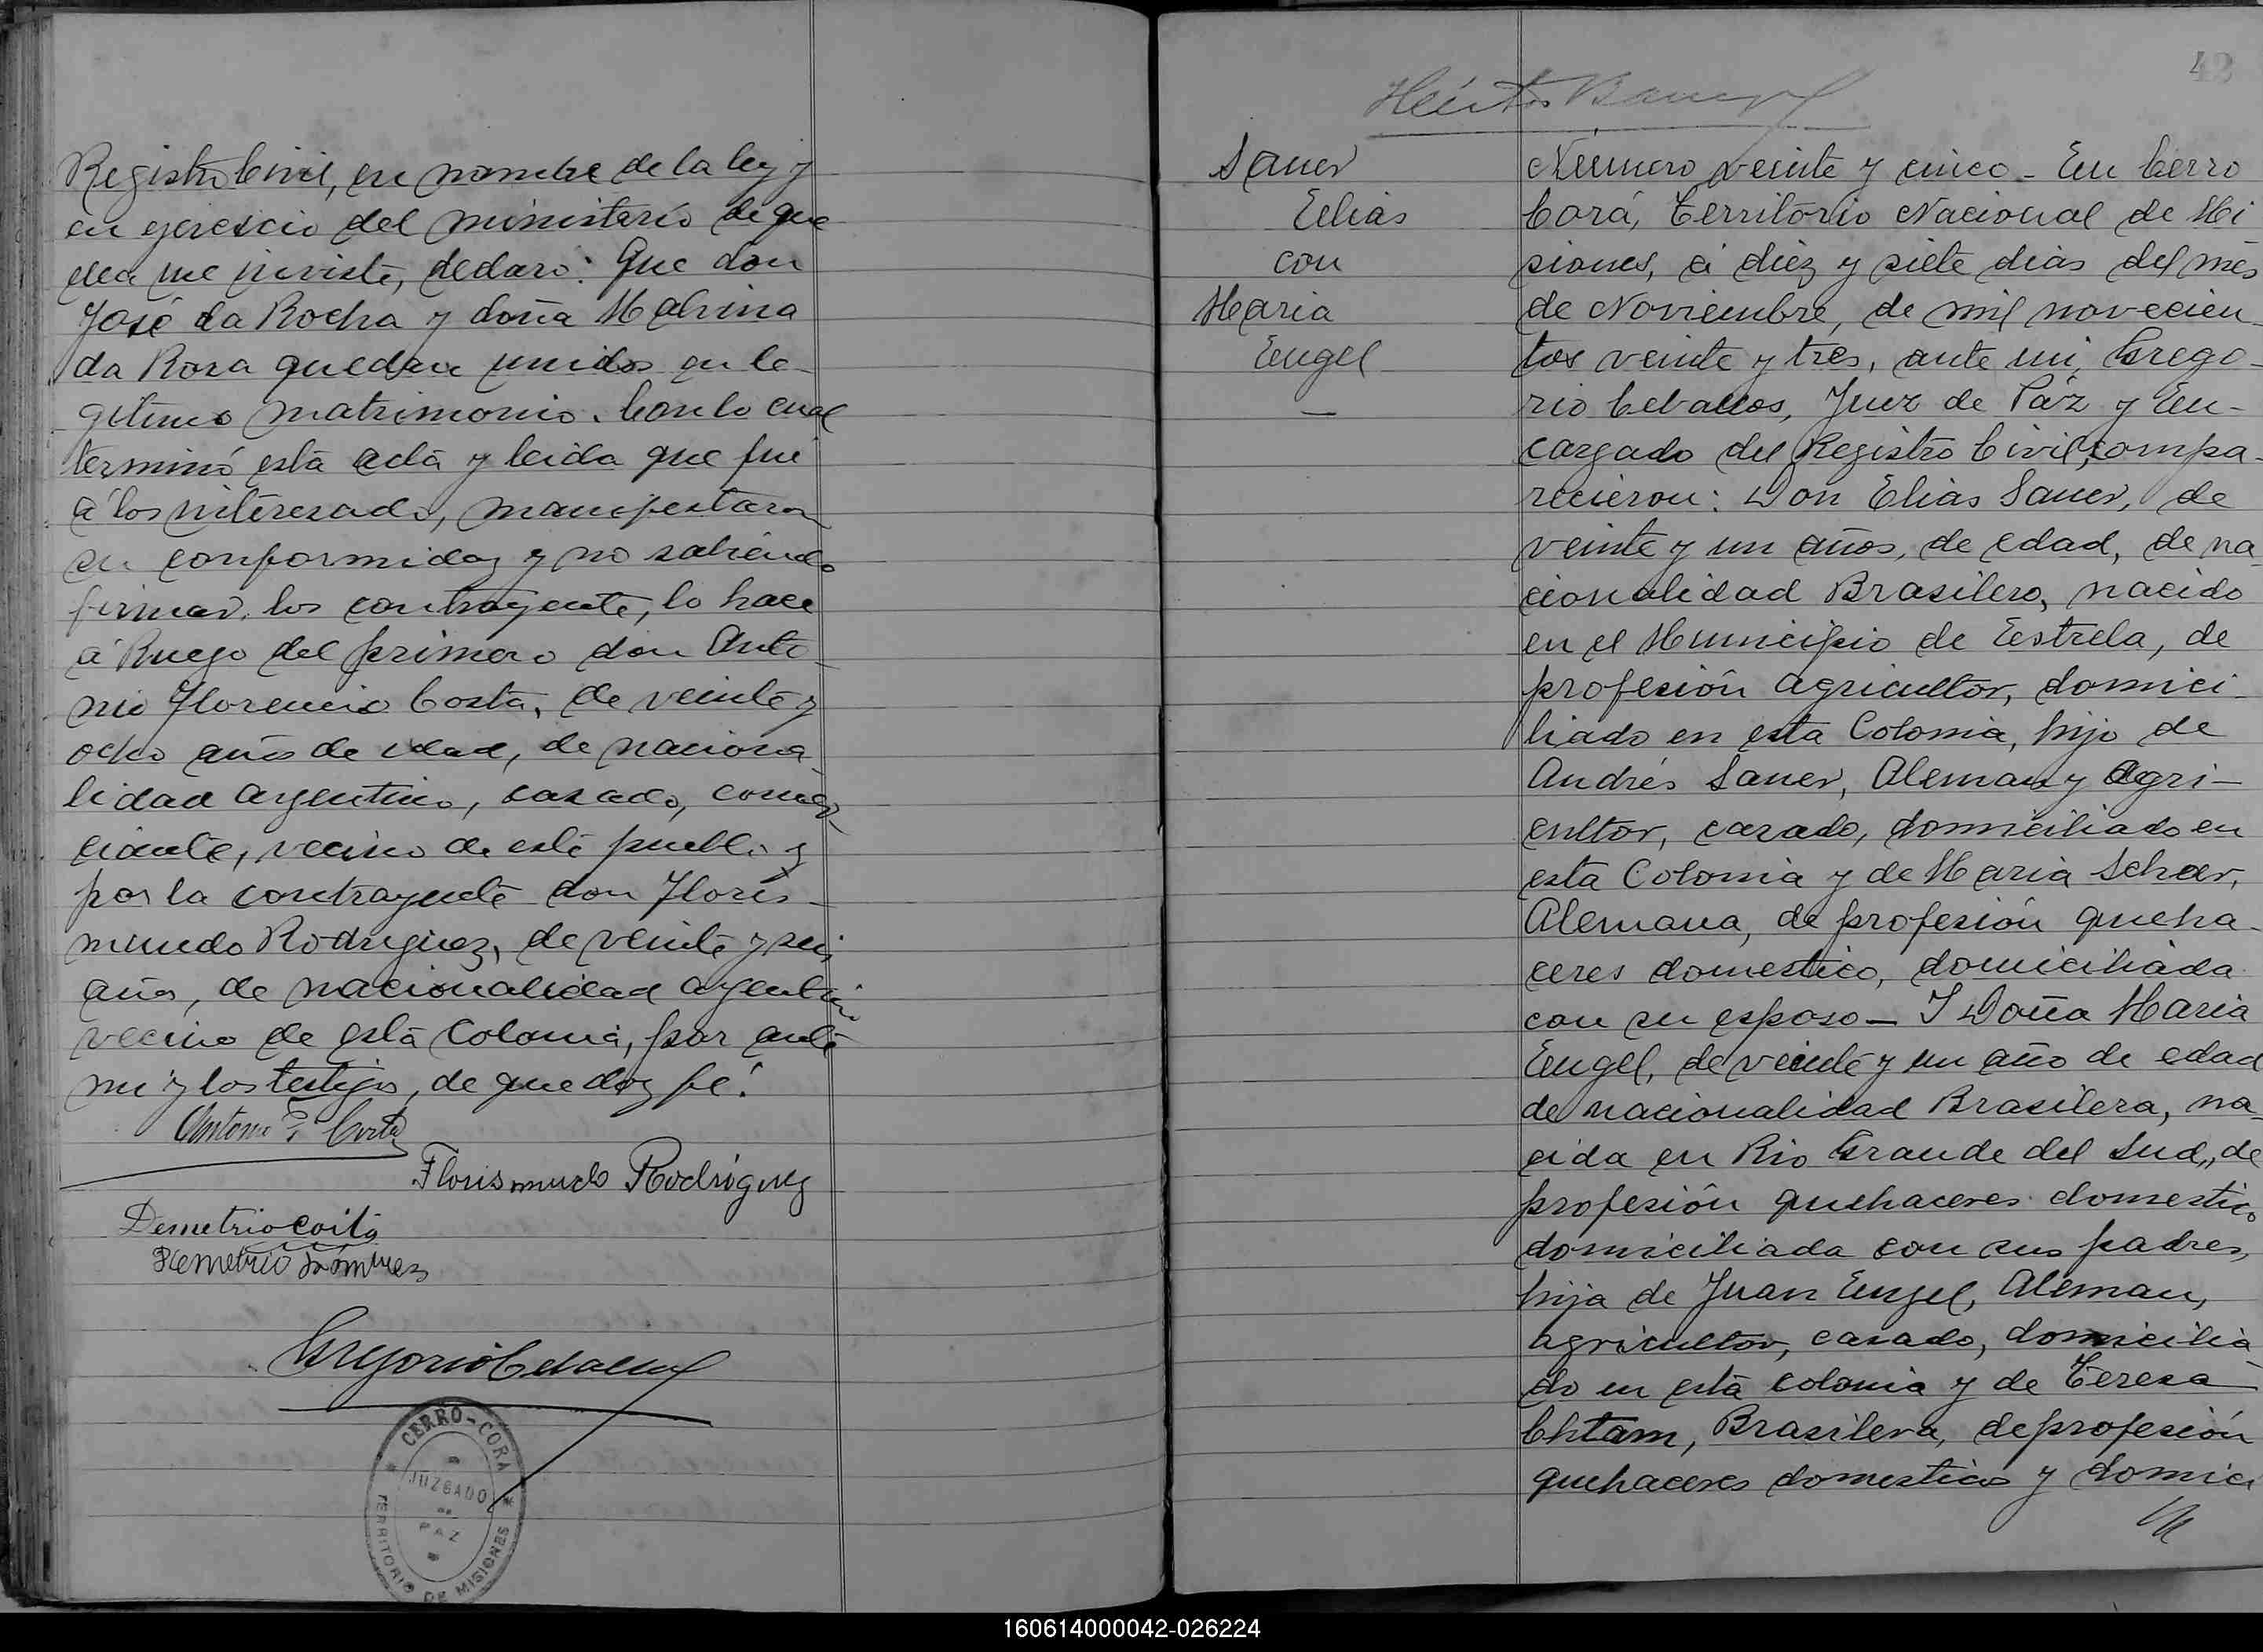 Registro Civil, en nombre de la ley y
en ejerescio del ministerio de que
ella me inviste, declaro: Que don
José da Rocha y doña Malvina
da Rosa quedan unidos en le-
gitimo matrimonio. Con lo cual
terminó esta acta y leida que fué
á los interesado, manifestaron
su conformidad y no sabiendo
firmar los contrayente, lo hace
á Ruego del primero don Anto-
nio Florencio Costa, de veinte y
ocho años de edad, de naciona-
lidad argentino, casado, comer-
ciante, vecino de este pueblo y
por la contrayente don Floris-
mundo Rodriguez, de veinte y seis
años, de nacionalidad argentino
vecino de esta Colonia, por ante
mi y los testigos, de que doy fé.
Antonio F. Costa
Florismundo Rodríguez
Demetrio Coito
Demetrio
Gregorio Ceballos
CERRO-CORA
JUZGADO
DE
PAZ
TERRITORIO DE MISIONES
42
Héctor
Sauer
Elias
con
Maria
Engel
—
Número veinte y cinco - En Cerro
Corá, Territorio Nacional de Mi
siones, á diez y siete dias del més
de Noviembre, de mil novecien-
tos veinte y tres, ante mi, Grego-
rio Ceballos, Juez de Páz y En-
cargado del Registro Civil, compa-
recieron: Don Elias Sauer, de
veinte y un años, de edad, de na-
cionalidad Brasilero, nacido
en el Municipio de Estrela, de
profesión agricultor, domici-
liado en esta Colonia, hijo de
Andrés Sauer, Aleman y Agri-
cultor, casado, domiciliado en
esta Colonia y de Maria Scher,
Alemana, de profesión queha-
ceres domestico, domiciliada
con su esposo - Y Doña Maria
Engel, de veinte y un año de edad
de nacionalidad Brasilera, na-
cida en Rio Grande del Sud, de
profesión quehaceres domestico
domiciliada con sus padres,
hija de Juan Engel, Aleman,
agricultor, casado, domicilia-
do en esta colonia y de Teresa
Chtam, Brasilera, de profesión
quehaceres domestico y domici